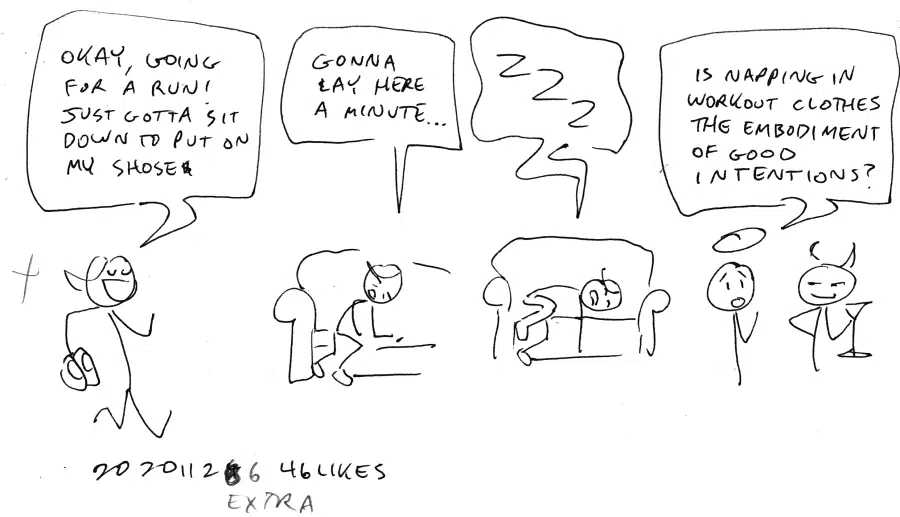 OKAY, GOING
FOR A RUN!
JUST GOTTA SIT
DOWN TO PUT ON
MY SHOSE
GONNA
LAY HERE
A MINUTE...
Z
Z
Z
IS NAPPING IN
WORKOUT CLOTHES
THE EMBODIMENT
OF GOOD
INTENTIONS?
20201126 46 LIKES
EXTRA